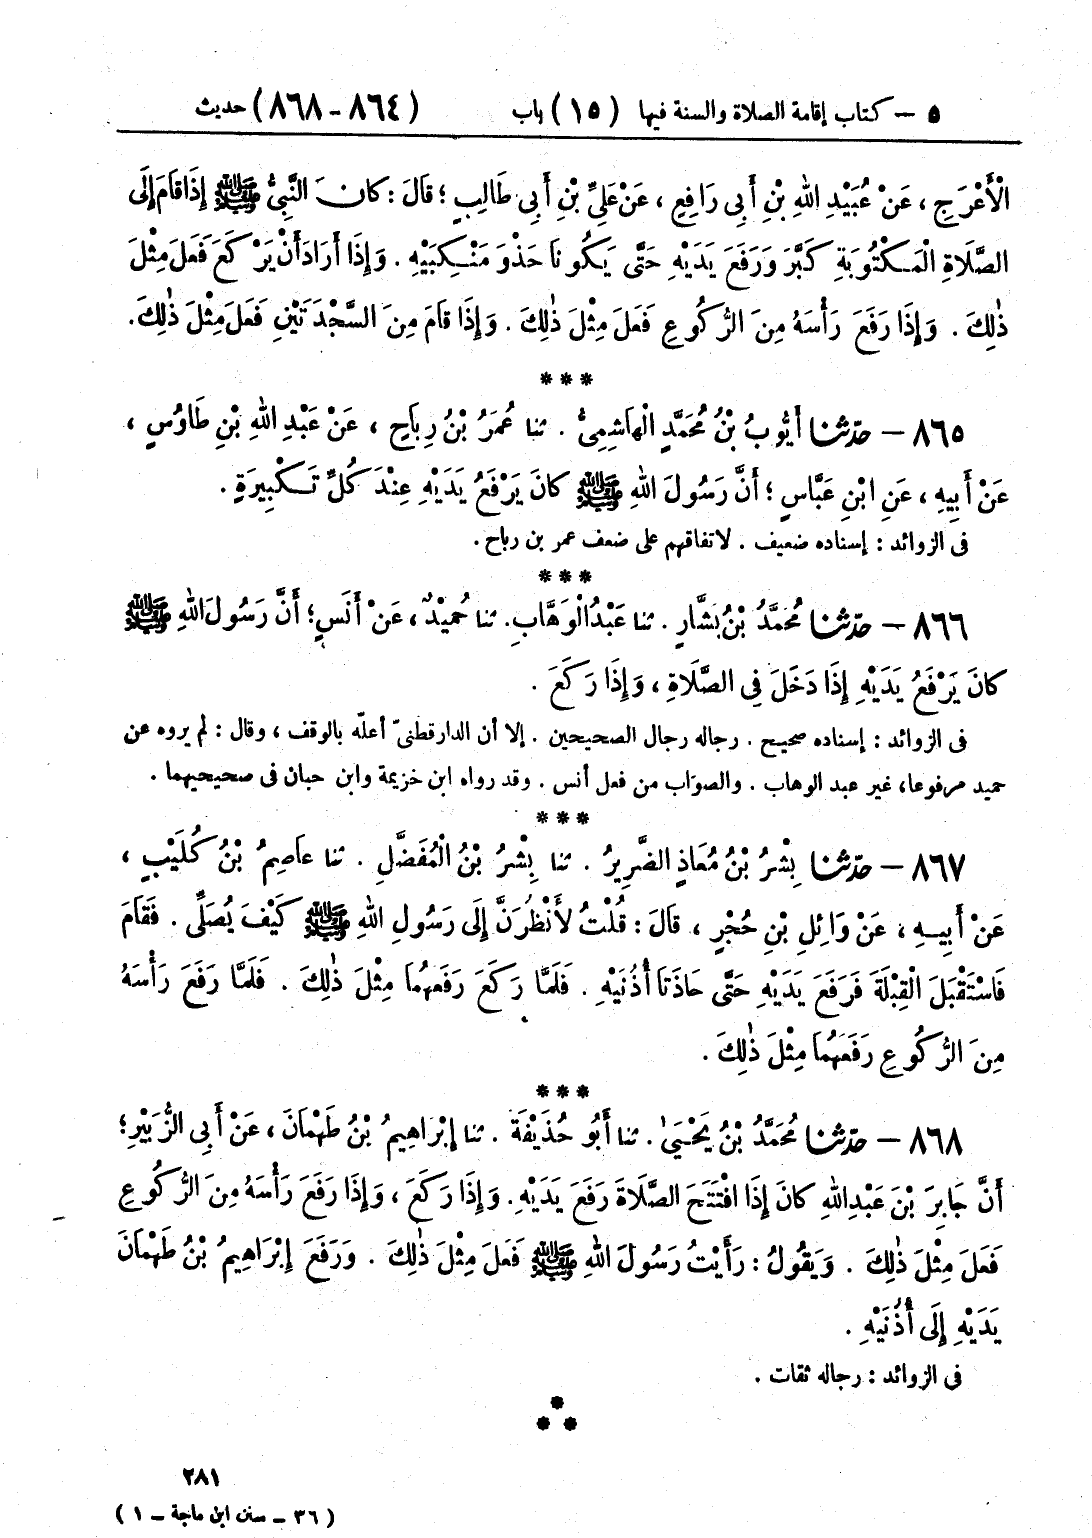 ٥ – كتاب إقامة الصلاة والسنة فيها (١٥) باب (٨٦٤ - ٨٦٨) حديث
الْأَعْرَجِ ، عَنْ عُبَيْدِ اللهِ بْنِ أَبِى رَافِعٍ ، عَنْ عَلِيِّ بْنِ أَبِى طَالِبٍ ؛ قَالَ : كَانَ النَّبِيُّ ﷺ إِذَا قَامَ إِلَى
الصَّلَاةِ الْمَكْتُوبَةِ كَبَّرَ وَرَفَعَ يَدَيْهِ حَتَّى يَكُونَا حَذْوَ مَنْكِبَيْهِ . وَإِذَا أَرَادَ أَنْ يَرْكَعَ فَعَلَ مِثْلَ
ذٰلِكَ . وَإِذَا رَفَعَ رَأْسَهُ مِنَ الرُّكُوعِ فَعَلَ مِثْلَ ذٰلِكَ . وَإِذَا قَامَ مِنَ السَّجْدَتَيْنِ فَعَلَ مِثْلَ ذٰلِكَ.
***
٨٦٥ – حدّثنا أَيُّوبُ بْنُ مُحَمَّدٍ الْهَاشِمِىُّ . ثنا عُمَرُ بْنُ رِبَاحٍ ، عَنْ عَبْدِ اللهِ بْنِ طَاوُسٍ ،
عَنْ أَبِيهِ ، عَنِ ابْنِ عَبَّاسٍ ؛ أَنَّ رَسُولَ اللهِ ﷺ كَانَ يَرْفَعُ يَدَيْهِ عِنْدَ كُلِّ تَكْبِيرَةٍ .
فى الزوائد : إسناده ضعيف . لاتفاقهم على ضعف عمر بن رباح.
***
٨٦٦ – حدّثنا مُحَمَّدُ بْنُ بَشَّارٍ . ثنا عَبْدُ الْوَهَّابِ. ثنا حُمَيْدٌ ، عَنْ أَنَسٍ؛ أَنَّ رَسُولَ اللهِ ﷺ
كَانَ يَرْفَعُ يَدَيْهِ إِذَا دَخَلَ فِى الصَّلَاةِ ، وَإِذَا رَكَعَ .
فى الزوائد : إسناده صحيح . رجاله رجال الصحيحين . إلا أن الدارقطنىّ أعلّه بالوقف ، وقال : لم يروه عن
حميد مرفوعا، غير عبد الوهاب . والصواب من فعل أنس . وقد رواه ابن خزيمة وابن حبان فى صحيحيهما .
***
٨٦٧ – حدّثنا بِشْرُ بْنُ مُعَاذٍ الضَّرِيرُ . ثنا بِشْرُ بْنُ الْمُفَضَّلِ . ثنا عَاصِمُ بْنُ كُلَيْبٍ ،
عَنْ أَبِيهِ ، عَنْ وَائِلِ بْنِ حُجْرٍ ، قَالَ : قُلْتُ لَأَنْظُرَنَّ إِلَى رَسُولِ اللهِ ﷺ كَيْفَ يُصَلِّى . فَقَامَ
فَاسْتَقْبَلَ الْقِبْلَةَ فَرَفَعَ يَدَيْهِ حَتَّى حَاذَتَا أُذُنَيْهِ . فَلَمَّا رَكَعَ رَفَعَهُمَا مِثْلَ ذٰلِكَ . فَلَمَّا رَفَعَ رَأْسَهُ
مِنَ الرُّكُوعِ رَفَعَهُمَا مِثْلَ ذٰلِكَ .
***
٨٦٨ – حدّثنا مُحَمَّدُ بْنُ يَحْيَىٰ . ثنا أَبُو حُذَيْفَةَ . ثنا إِبْرَاهِيمُ بْنُ طَهْمَانَ ، عَنْ أَبِى الزُّبَيْرِ ؛
أَنَّ جَابِرَ بْنَ عَبْدِ اللهِ كَانَ إِذَا افْتَتَحَ الصَّلَاةَ رَفَعَ يَدَيْهِ. وَإِذَا رَكَعَ ، وَإِذَا رَفَعَ رَأْسَهُ مِنَ الرُّكُوعِ
فَعَلَ مِثْلَ ذٰلِكَ . وَيَقُولُ : رَأَيْتُ رَسُولَ اللهِ ﷺ فَعَلَ مِثْلَ ذٰلِكَ . وَرَفَعَ إِبْرَاهِيمُ بْنُ طَهْمَانَ
يَدَيْهِ إِلَى أُذُنَيْهِ .
فى الزوائد : رجاله ثقات .
***
٢٨١
(٣٦ – سنن ابن ماجة – ١)